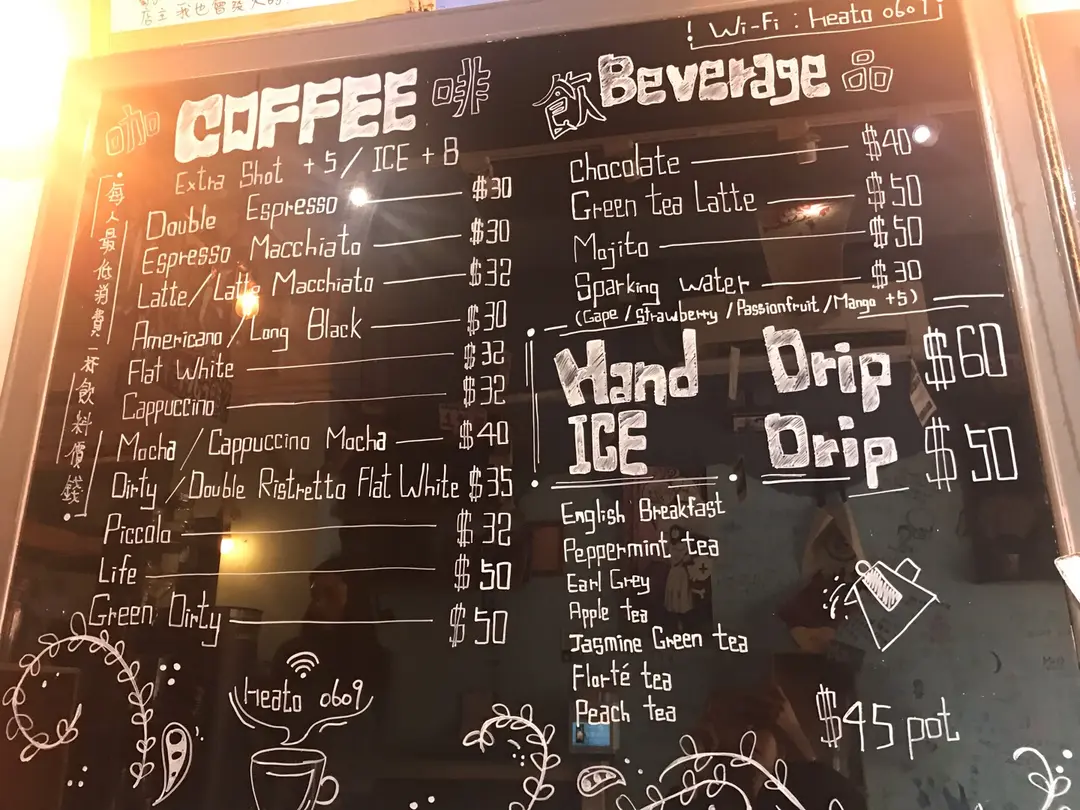 店主 我也會
! Wi-Fi : heato 0609 !
咖 COFFEE 啡
Extra Shot +5 / ICE + 8
每人最低消費一杯飲料價錢
Double Espresso $30
Espresso Macchiato $30
Latte/Latte Macchiato $32
Americano / Long Black $30
Flat White $32
Cappuccino $32
Mocha / Cappuccino Mocha $40
Dirty / Double Ristretto Flat White $35
Piccolo $32
Life $50
Green Dirty $50
heato 0609
飲 Beverage 品
Chocolate $40
Green tea Latte $50
Mojito $50
Sparking water $30
(Gape / Strawberry / Passionfruit / Mango +5)
Hand Drip $60
ICE Drip $50
English Breakfast
Peppermint tea
Earl Grey
Apple tea
Jasmine Green tea
Florté tea
Peach tea
$45 pot